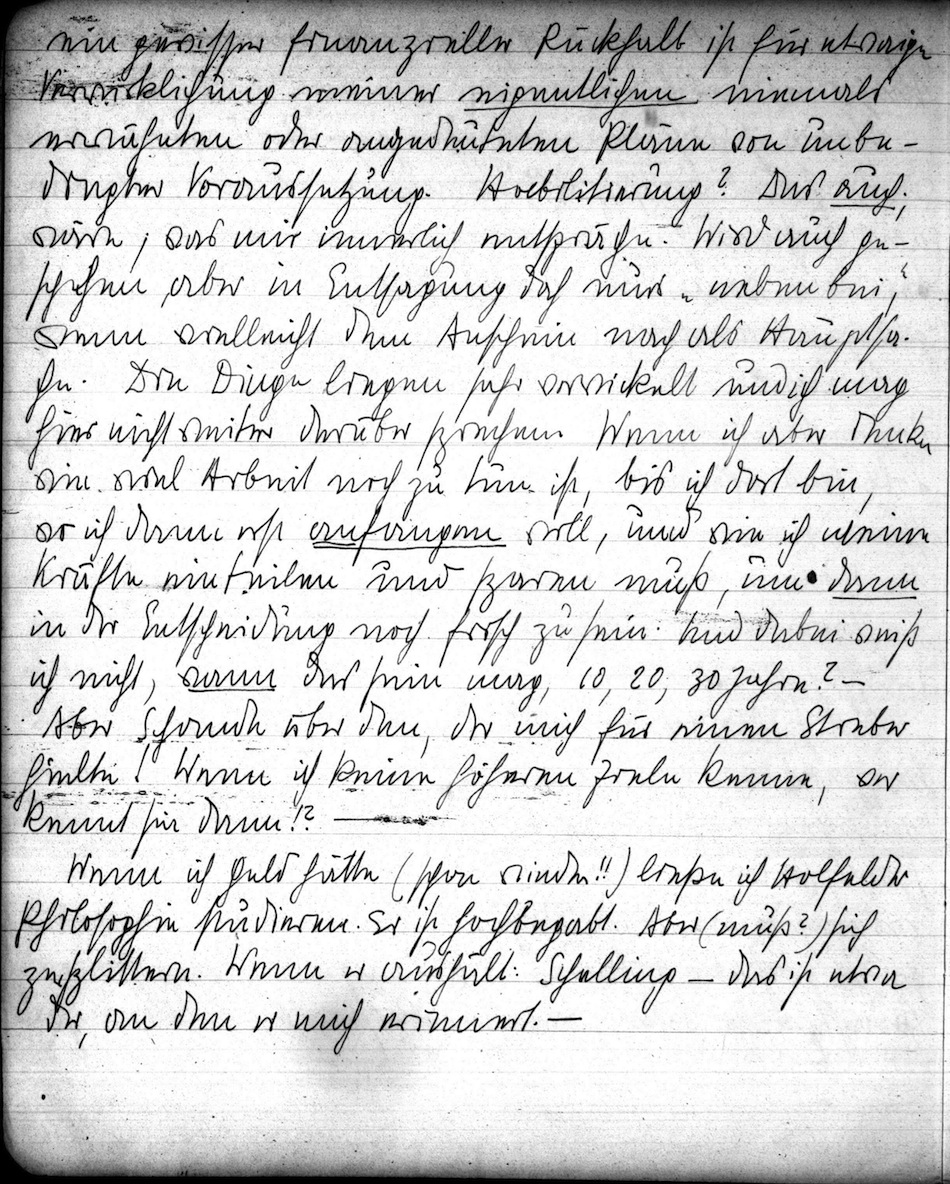 ein gewisser finanzieller Rückhalt ist für etwaige
Verwirklichung meiner eigentlichen niemals
erwähnten oder angedeuteten Pläne von unbe-
dingter Voraussetzung. Habilitierung? Das auch,
wäre, was mir innerlich entspräche. Wird auch ge-
schehen aber in Entsagung doch nur „nebenbei",
wenn vielleicht dem Anschein nach als Hauptsa-
che. Die Dinge liegen sehr verwickelt und ich mag
hier nicht weiter darüber sprechen. Wenn ich aber denke
wie viel Arbeit noch zu tun ist, bis ich dort bin,
wo ich dann erst anfangen will, und wie ich meine
Kräfte einteilen und sparen muß, um dann
in der Entscheidung noch frisch zu sein. Und dabei weiß
ich nicht, wann das sein mag, 10, 20, 30 Jahre? —
Aber Schande über den, der mich für einen Streber
hielte! Wenn ich keine höheren Ziele kenne, wer
kennt sie dann!? —
Wenn ich Geld hätte (schon wieder!!) ließe ich Holfelder
Philosophie studieren. Er ist hochbegabt. Aber (muß?) sich
zersplittern. Wenn er aushält: Schelling — das ist etwa
der, an den er mich erinnert. —